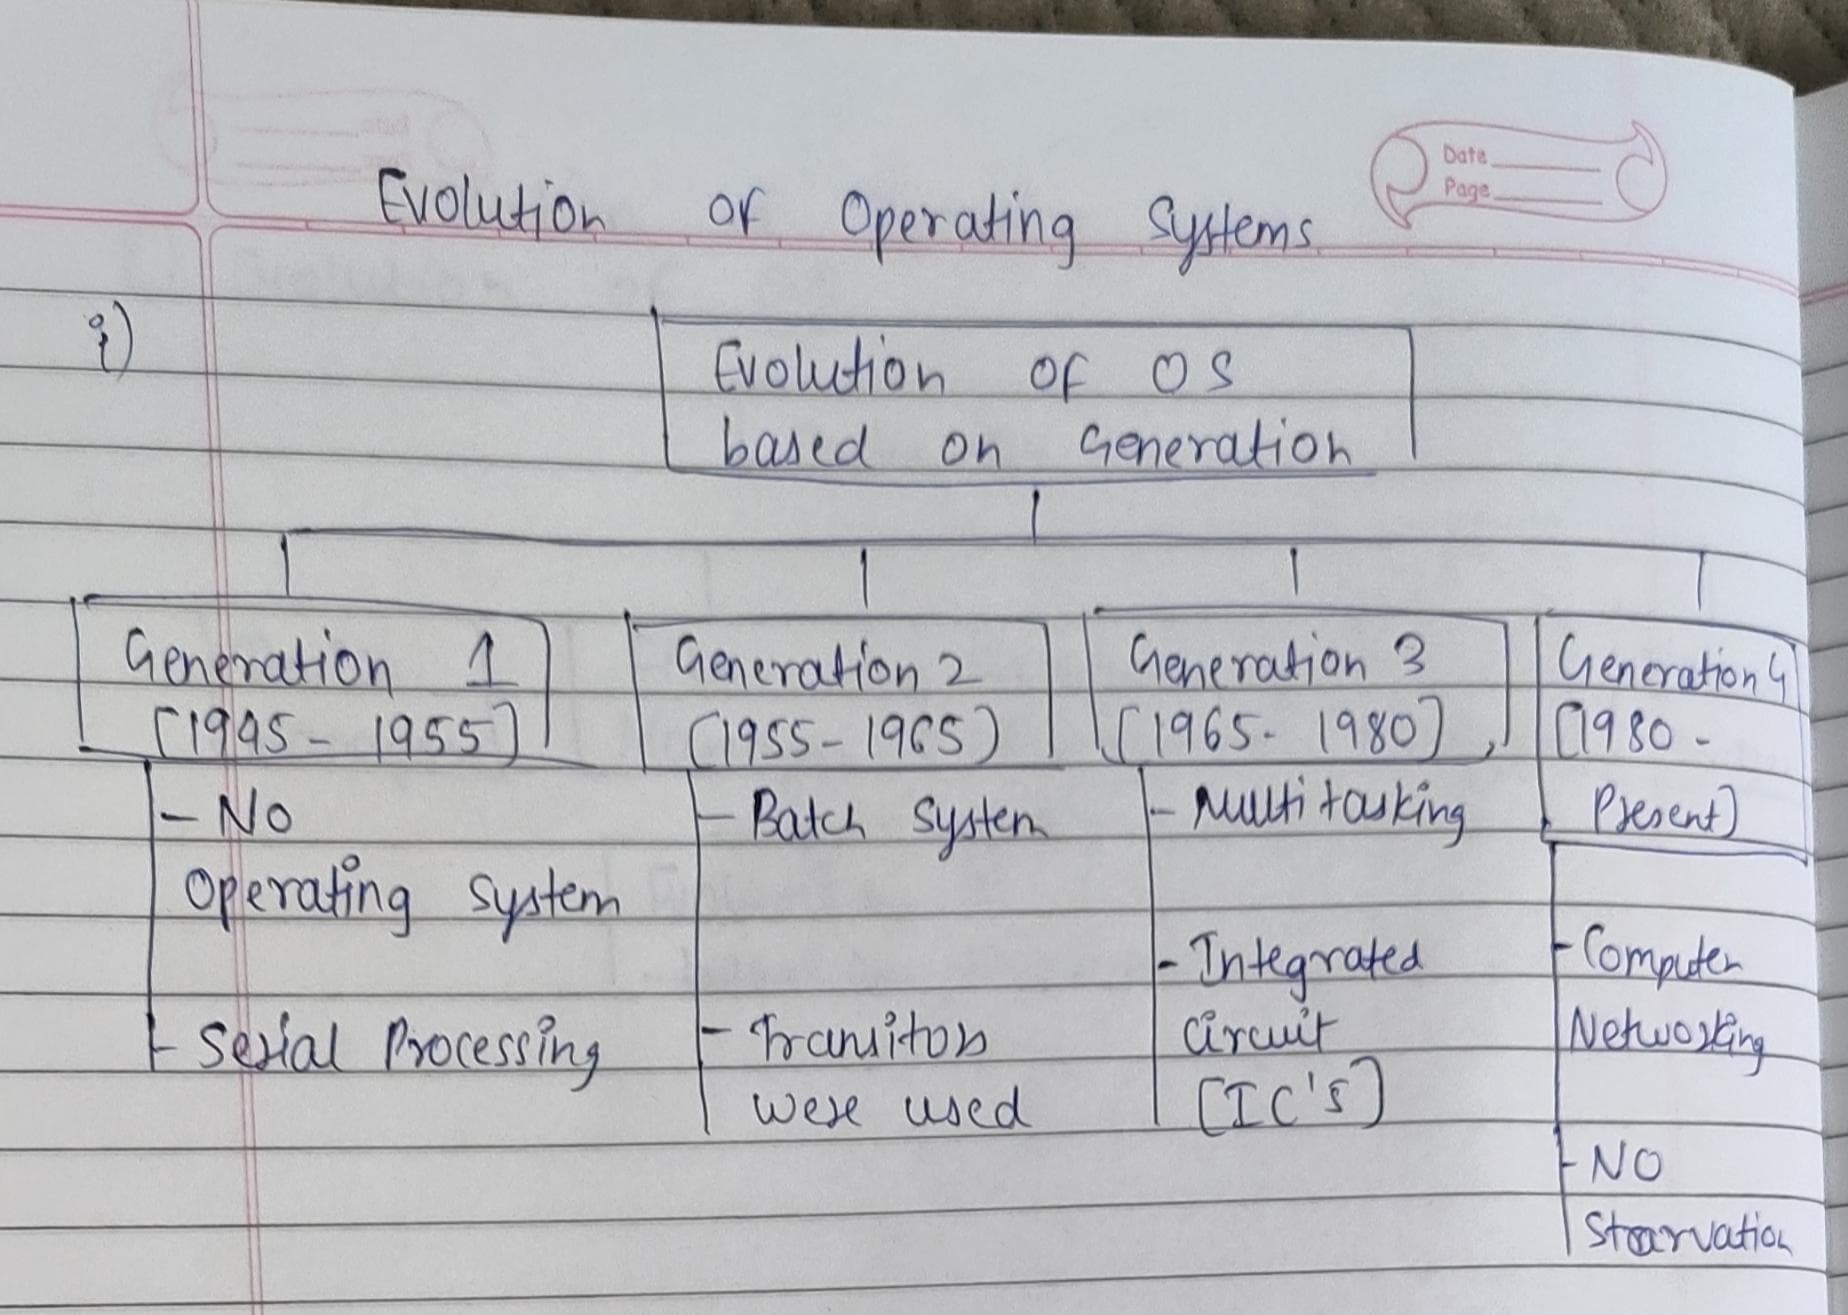 Date
Page
Evolution of Operating Systems
i)
Evolution of OS
based on Generation
Generation 1
[1945 - 1955]
- No
Operating System
- Serial Processing
Generation 2
(1955 - 1965)
- Batch System
- Transitors
were used
Generation 3
[1965 - 1980]
- Multitasking
- Integrated
circuit
[IC's]
Generation 4
[1980 -
Present]
- Computer
Networking
- No
Starvation